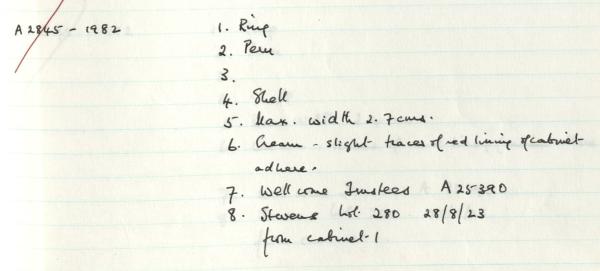 A2845-1982 1. Ring
2. Peru
3.
4. Shell
5. Max. width 2.7cms.
6. Cream - slight traces of red lining of cabinet
adhere.
7. Wellcome Trustees A25390
8. Stevens Lot. 280 28/8/23
from cabinet 1